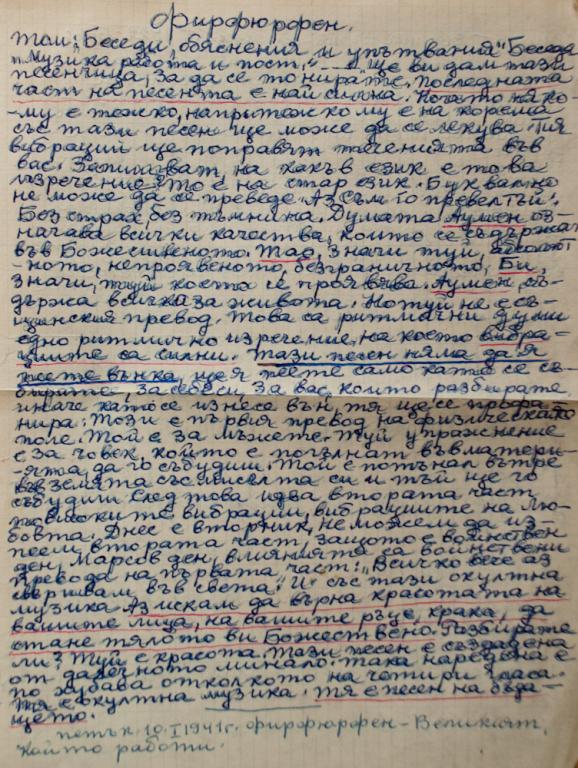 Фир-фюр-фен.
том: "Беседи, обяснения и упътвания" Беседа
"Музика работа и пост." --- Ще ви дам тази
песенчица, за да се тонирате, последната
част на песента е най силна. Когато няко-
му е тежко, напр. тежко му е на корема
със тази песен ще може да се лекува. Тия
вибрации ще поправят теченията във
вас. Запитват, на какъв език е това
изречение? То е на стар език. Буквално
не може да се преведе. "Аз съм го превел тъй:
Без страх, без тъмнина. Думата Аумен оз-
начава всички качества, които се съдържат
във Божественото. Тао, значи туй, абсолют-
-ното, непроявеното, безграничното, Би,
значи, туй което се проявява. Аумен, съ-
държа всичко за живота. Но туй не е съ-
щинския превод. Това са ритмични думи
едно ритмично изречение, на което вибра-
циите са силни. Тази песен няма да я
пеете вънка, ще я пеете само като се съ-
бирате, за себе си, за вас, които разбирате,
иначе като се изнесе вън, тя ще се профа-
нира. Този е първия превод на физическото
поле. Той е за мъжете. Туй упражнение
е за човек, който е потънал във матери-
-ята да го събудиш. Той е потънал вътре
във земята със мисълта си и тъй ще го
събудиш. След това идва втората част,
по високите вибрации, вибрациите на Лю-
бовта. Днес е вторник, не можем да из-
пеем втората част, защото е войнствен
ден, Марсов ден, влиянията са войнствени
Превода на първата част: "Всичко вече аз
свършвам във света." И със тази окултна
музика Аз искам да върна красотата на
вашите лица, на вашите ръце, крака, да
стане тялото ви Божествено. Разбирате
ли? Туй е красота. Тази песен е създадена
от далечното минало. Така наредена е
по хубава отколкото на четири гласа.
Тя е окултна музика. Тя е песен на бъде-
щето.
петък. 10.I 1941г. Фир-фюр-фен - Великият,
Който работи.